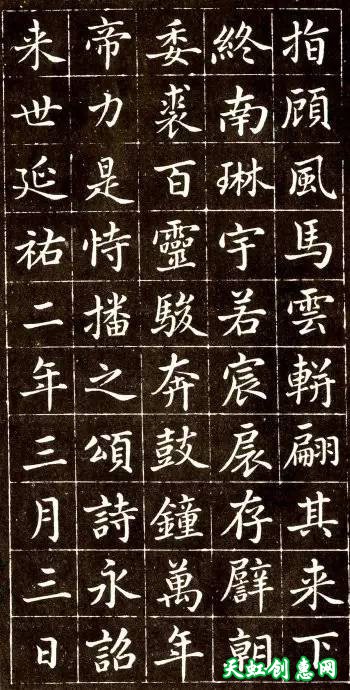 指顧風馬雲軿翩其来下
終南琳宇若宸扆存朝
委裘百靈駿奔鼓鐘萬年
帝力是恃播之頌詩永詔
来世延祐二年三月三日
天虹创意网